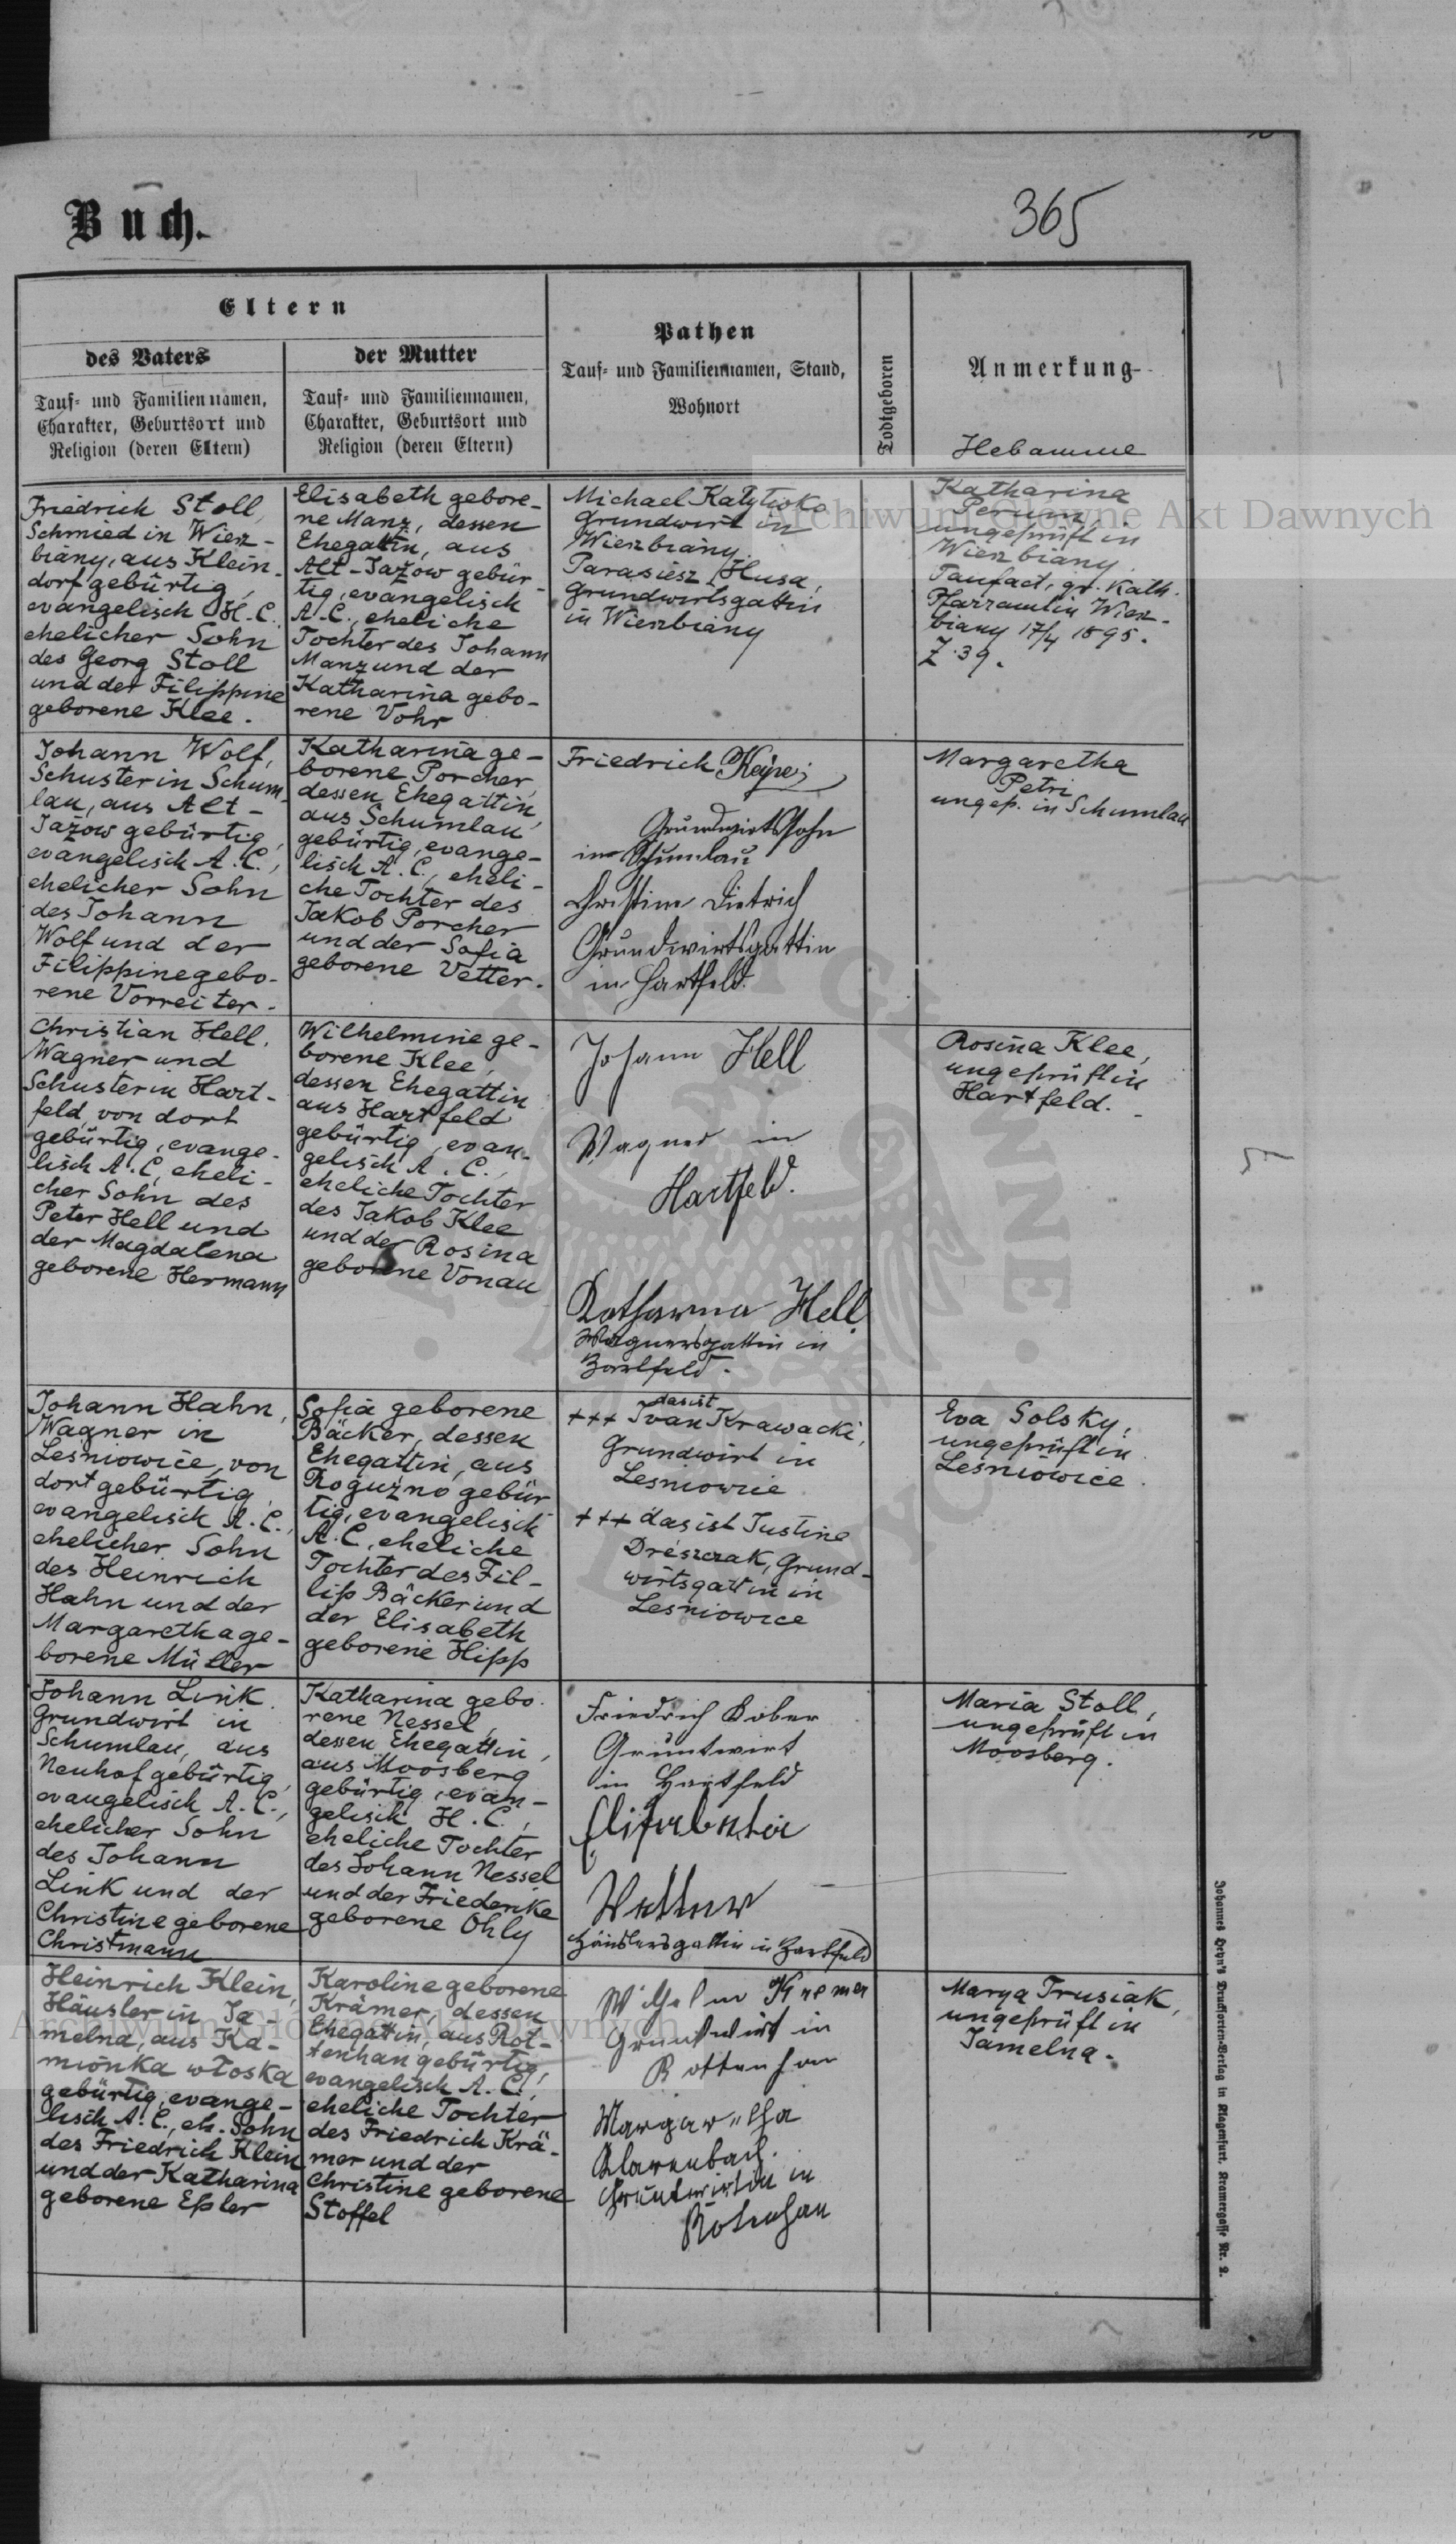 365
Buch.
Eltern
des Vaters
Tauf- und Familiennamen,
Charakter, Geburtsort und
Religion (deren Eltern)
der Mutter
Tauf- und Familiennamen,
Charakter, Geburtsort und
Religion (deren Eltern)
Pathen
Tauf- und Familiennamen, Stand,
Wohnort
Todtgeboren
Anmerkung
Hebamme
Friedrich Stoll,
Schmied in Wierz-
biany, aus Klein-
dorf gebürtig,
evangelisch H.C.,
ehelicher Sohn
des Georg Stoll
und der Filippine
geborene Klee.
Elisabeth gebore-
ne Manz, dessen
Ehegattin, aus
Alt-Jażow gebür-
tig, evangelisch
A.C., eheliche
Tochter des Johann
Manz und der
Katharina gebo-
rene Vohr
Michael
Grundwirt in
Wierzbiany.
Husa,
Grundwirtsgattin
in Wierzbiany
Katharina
Perun,
ungeprüft in
Wierzbiany.
Taufact, gr. Kath.
Pfarramt in Wierz-
biany 17/4 1895.
Z. 39.
Johann Wolf,
Schuster in Schum-
lau, aus Alt-
Jażow gebürtig,
evangelisch A.C.,
ehelicher Sohn
des Johann
Wolf und der
Filippine gebo-
rene Vorreiter.
Katharina ge-
borene Porcher,
dessen Ehegattin,
aus Schumlau
gebürtig, evange-
lisch A.C., eheli-
che Tochter des
Jakob Porcher
und der Sofia
geborene Vetter.
Friedrich
Grundwirtssohn
in Schumlau
Christine Dietrich
Grundwirtsgattin
in Hartfeld.
Margaretha
Petri
ungep. in Schumlau
Christian Hell,
Wagner und
Schuster in Hart-
feld, von dort
gebürtig, evange-
lisch A.C., eheli-
cher Sohn des
Peter Hell und
der Magdalena
geborene Hermann
Wilhelmine ge-
borene Klee,
dessen Ehegattin
aus Hartfeld
gebürtig, evan-
gelisch A.C.,
eheliche Tochter
des Jakob Klee
und der Rosina
geborene Vonau
Johann Hell
Wagner in
Hartfeld.
Katharina Hell
Wagnersgattin in
Hartfeld.
Rosina Klee,
ungeprüft in
Hartfeld.
Johann Hahn,
Wagner in
Leśniowice, von
dort gebürtig,
evangelisch A.C.,
ehelicher Sohn
des Heinrich
Hahn und der
Margaretha ge-
borene Müller
Sofia geborene
Bäcker, dessen
Ehegattin, aus
Roguźno gebür
tig, evangelisch
A.C., eheliche
Tochter des Fil-
lip Bäcker und
der Elisabeth
geborene Hipp
das ist
+++ Ivan Krawacki,
Grundwirt in
Lesniowice
+++ das ist Justine
Dreszczak, Grund-
wirtsgattin in
Lesniowice
Eva Solsky,
ungeprüft in
Leśniowice.
Johann Link
Grundwirt in
Schumlau, aus
Neuhof gebürtig,
evangelisch A.C.,
ehelicher Sohn
des Johann
Link und der
Christine geborene
Christmann
Katharina gebo-
rene Nessel,
dessen Ehegattin,
aus Moosberg
gebürtig, evan-
gelisch H.C.,
eheliche Tochter
des Johann Nessel
und der Friederike
geborene Ohly
Friedrich Kober
Gruntwirt
in Hartfeld
Häuslersgattin in Hartfeld
Maria Stoll,
ungeprüft in
Moosberg.
Heinrich Klein,
Häusler in Ja-
melna, aus Ka-
mionka włoska
gebürtig, evange-
lisch A.C., eh. Sohn
des Friedrich Klein
und der Katharina
geborene Eßler
Karoline geborene
Krämer, dessen
Ehegattin, aus Rot-
tenhan gebürtig,
evangelisch A.C.,
eheliche Tochter
des Friedrich Krä-
mer und der
Christine geborene
Stoffel
Wilhelm Kremer
Gruntwirt in
Rottenhan
Margaretha
Klarenbach.
Gruntwirtin in
Rotenhan
Marya Trusiak,
ungeprüft in
Jamelna.
Johannes Heyn's Drucksorten-Verlag in Klagenfurt, Kramergasse Nr. 2.
Archiwum Główne Akt Dawnych
Archiwum Główne Akt Dawnych